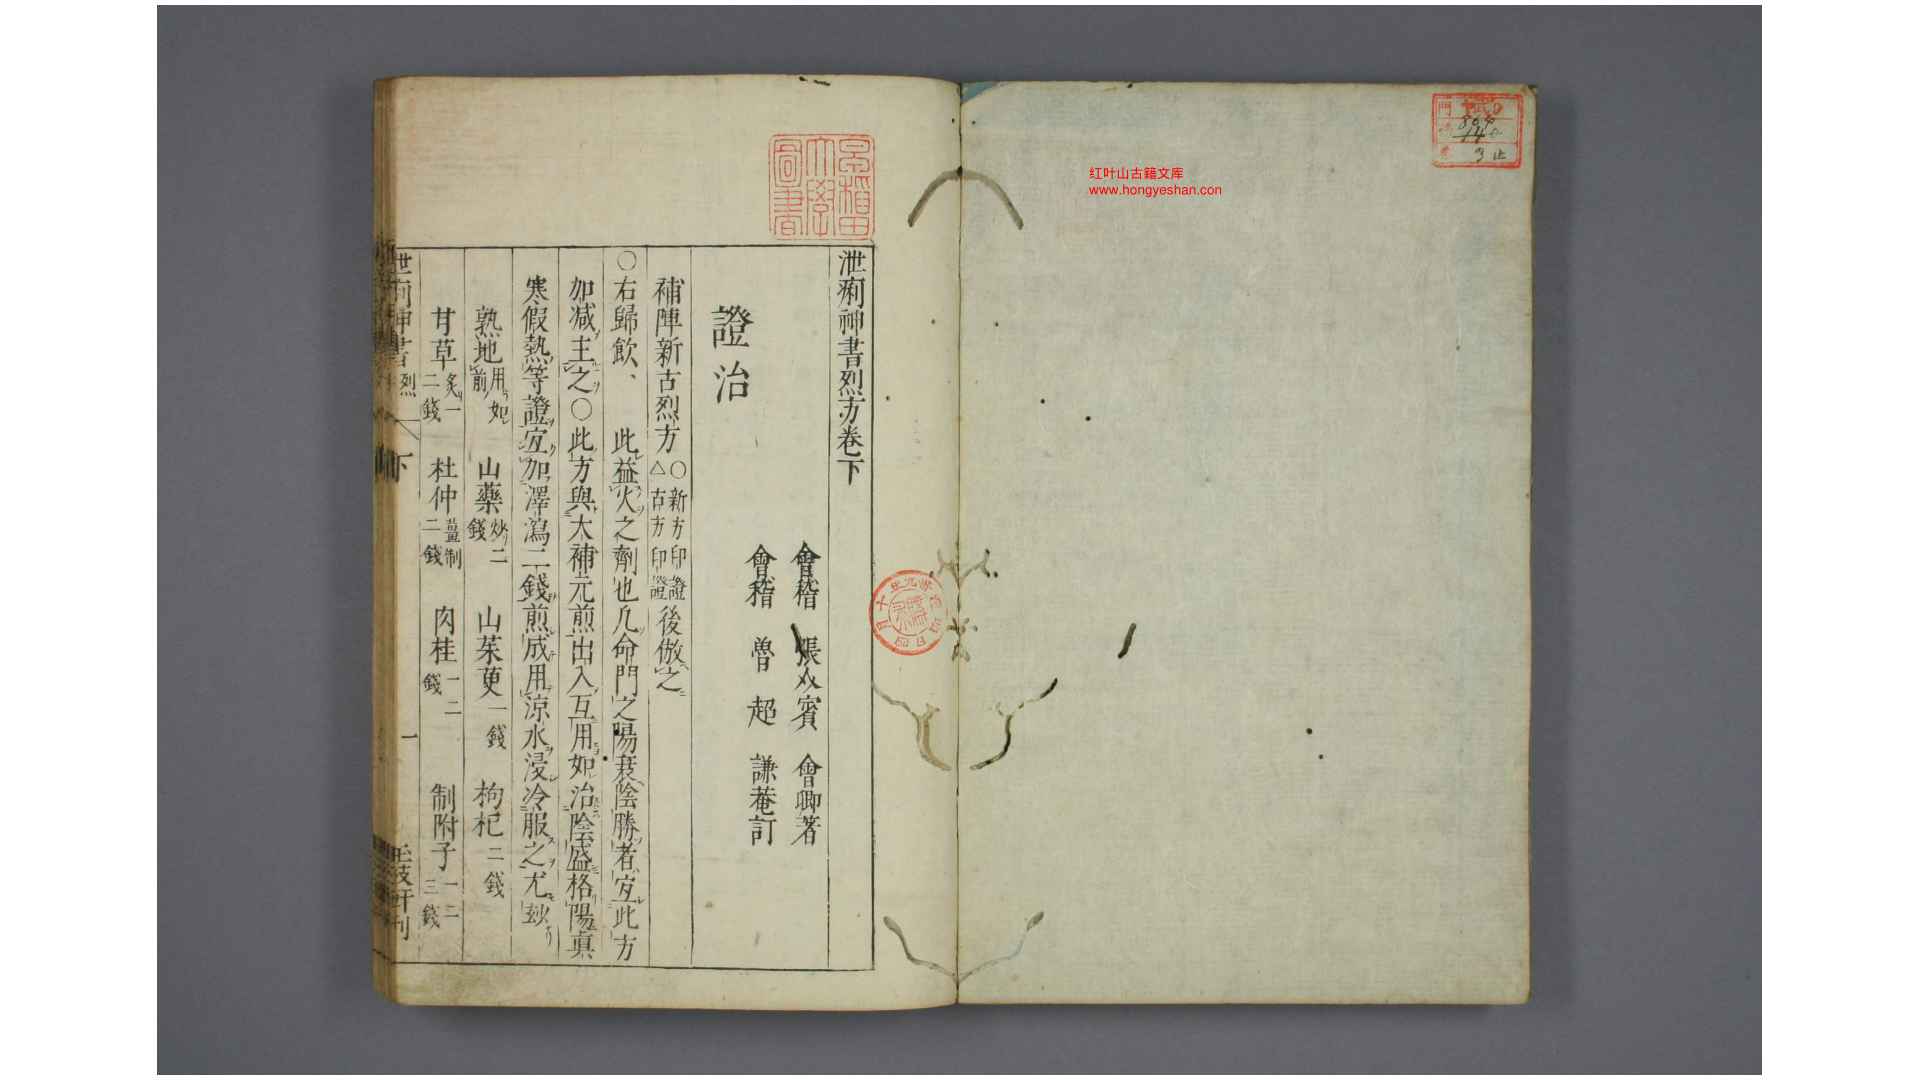 泄痢神書烈方卷下
會稽 張介賓 會卿著
會稽 魯超 謙菴訂
證治
補陣新古烈方 ○新方印證 △古方印證 後倣之
○右歸飲、 此益火之劑也凡命門之陽衰陰勝者宜此方
加減主之○此方與大補元煎出入互用如治陰盛格陽真
寒假熱等證宜加澤瀉二錢煎成用涼水浸冷服之尤玅
熟地用如前 山藥炒二錢 山茱萸一錢 枸杞二錢
甘草炙一二錢 杜仲薑制二錢 肉桂一二錢 制附子一二三錢
泄痢神書 烈 下 一
早稻田大學圖書
红叶山古籍文库
www.hongyeshan.con